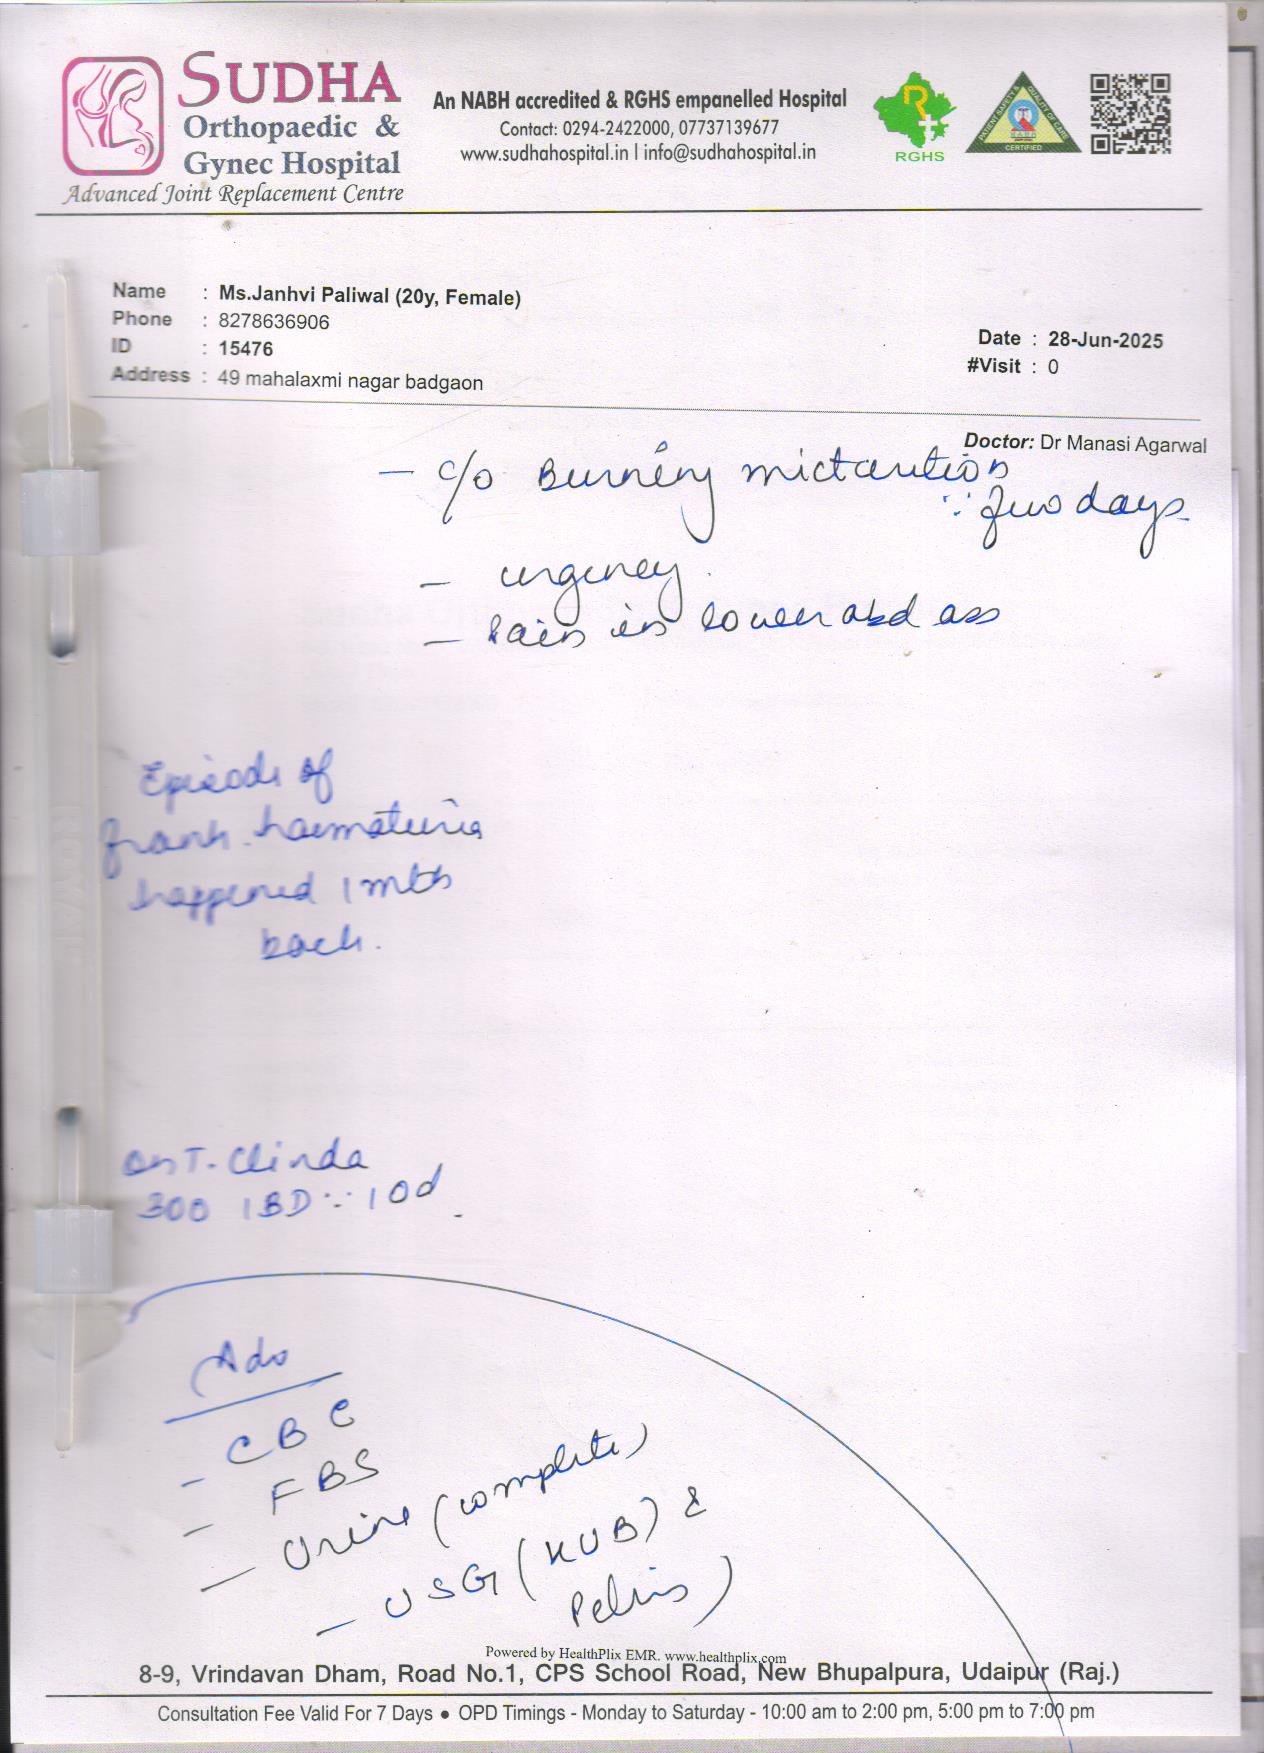 SUDHA
Orthopaedic &
Gynec Hospital
Advanced Joint Replacement Centre
An NABH accredited & RGHS empanelled Hospital
Contact: 0294-2422000, 07737139677
www.sudhahospital.in | info@sudhahospital.in
RGHS
PATIENT SAFETY & QUALITY OF CARE
CERTIFIED
Name : Ms.Janhvi Paliwal (20y, Female)
Phone : 8278636906
ID : 15476
Address : 49 mahalaxmi nagar badgaon
Date : 28-Jun-2025
#Visit : 0
Doctor: Dr Manasi Agarwal
- c/o Burning micturition
∵ few days
- urgency
- Pain in lower abd
Episode of
frank haematuria
happened 1 mth
back.
On T. Clinda
300 1BD ∵ 10d
Adv
- CBC
- FBS
- Urine (complete)
- USG (KUB) &
Pelvis)
Powered by HealthPlix EMR. www.healthplix.com
8-9, Vrindavan Dham, Road No.1, CPS School Road, New Bhupalpura, Udaipur (Raj.)
Consultation Fee Valid For 7 Days ● OPD Timings - Monday to Saturday - 10:00 am to 2:00 pm, 5:00 pm to 7:00 pm